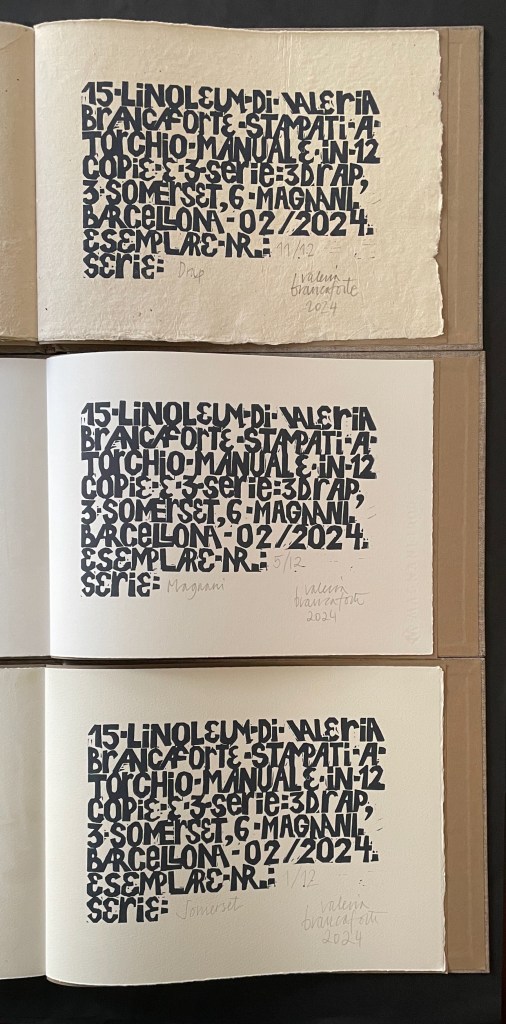 15·LINOLEUM·DI·VALERIA
BRANCAFORTE·STAMPATI·A·
TORCHIO·MANUALE·IN·12
COPIE·E·3·SERIE:3DRAP,
3·SOMERSET,6·MAGNANI.
BARCELLONA·02/2024.
ESEMPLARE·NR.: 11/12
SERIE: Drap
valeria
brancaforte
2024
15·LINOLEUM·DI·VALERIA
BRANCAFORTE·STAMPATI·A·
TORCHIO·MANUALE·IN·12
COPIE·E·3·SERIE:3DRAP,
3·SOMERSET,6·MAGNANI.
BARCELLONA·02/2024.
ESEMPLARE·NR.: 5/12
SERIE: Magnani
valeria
brancaforte
2024
15·LINOLEUM·DI·VALERIA
BRANCAFORTE·STAMPATI·A·
TORCHIO·MANUALE·IN·12
COPIE·E·3·SERIE:3DRAP,
3·SOMERSET,6·MAGNANI.
BARCELLONA·02/2024.
ESEMPLARE·NR.: 1/12
SERIE: Somerset
valeria
brancaforte
2024